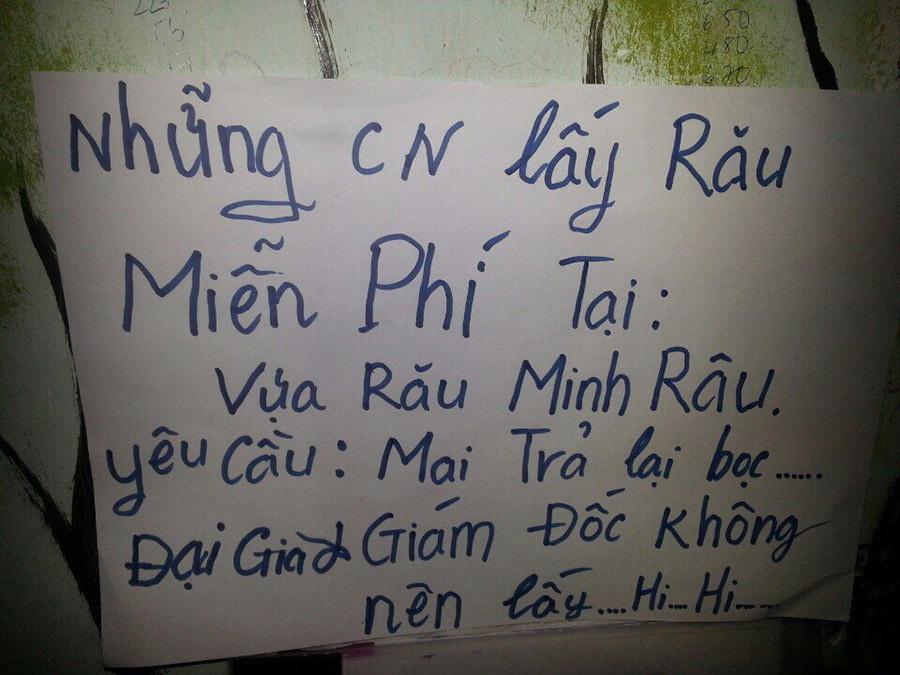 650
480
Những CN lấy Rău
Miễn Phí Tại:
Vựa Rău Minh Râu.
yêu cầu: Mai Trả lại bọc......
Đại Giad Giám Đốc Không
nên lấy....Hi...Hi....